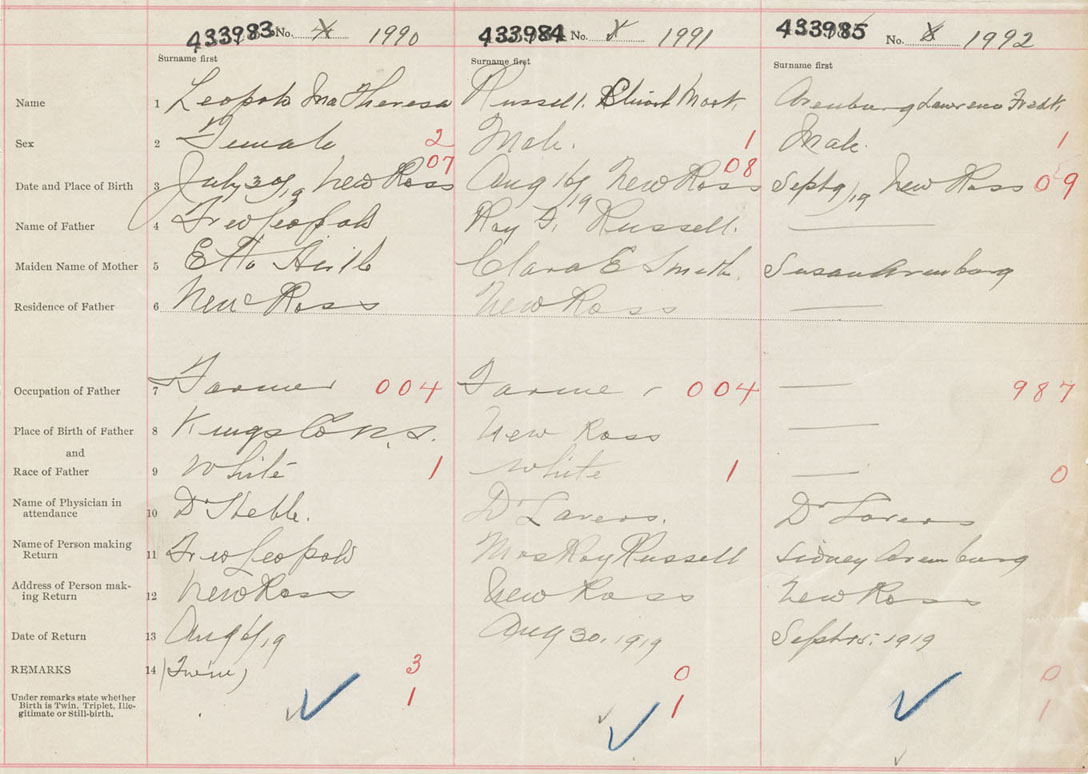 433983 No. X 1990 433984 No. X 1991 433985 No. X 1992
Surname first Surname first Surname first
Name 1 Leopold Ina Theresa Russell. Mark. Arenburg Lawrence Fredk.
Sex 2 Female 2 Male. 1 Male. 1
07 08
Date and Place of Birth 3 July 30/19 New Ross Aug 16/19 New Ross Sept 9/19 New Ross 09
Name of Father 4 Fred Leopold Roy F. Russell.
Maiden Name of Mother 5 Etta Clara E Smith. Susan Arenburg
Residence of Father 6 New Ross New Ross
Occupation of Father 7 Farmer 004 Farmer 004 987
Place of Birth of Father 8 Kings Co N.S. New Ross
and
Race of Father 9 White 1 White 1 0
Name of Physician in
attendance 10 Dr Hebb. Dr Lavers. Dr Lavers
Name of Person making
Return 11 Fred Leopold Mrs Roy Russell Sidney Arenburg
Address of Person mak-
ing Return 12 New Ross New Ross New Ross
Date of Return 13 Aug 6/19 Aug 30. 1919 Sept 15. 1919
REMARKS 14 (Twin) 3 0 0
Under remarks state whether
Birth is Twin, Triplet, Ille-
gitimate or Still-birth. 1 1 1